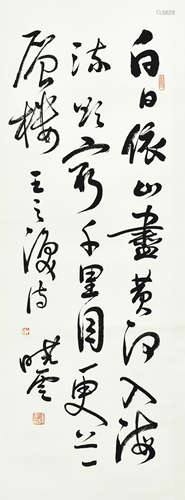 白日依山盡黄河入海
流欲窮千里目更上一
層樓
王之渙诗
晓雲